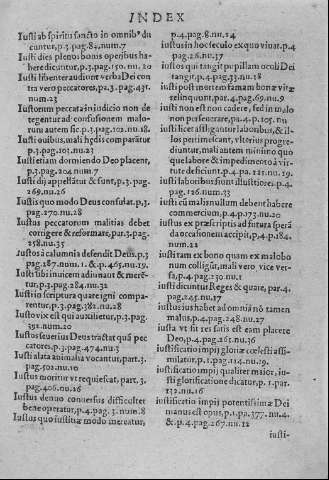 INDEX
Iusti ab spiritu sancto in omnib' du
cuntur, p.3.pag.84.num.7
Iusti dies plenos bonis operibus ha-
bere dicuntur, p.3.pag.150.nu.20
Iusti libenter audiunt verba Dei con
tra vero peccatores, p.3.pag.431.
num.23
Iustorum peccata in iudicio non de
tegentur ad confusionem malo-
rum autem sic. p.3.pag.102.nu.18.
Iusti ouibus, mali hœdis comparatur
p.3.pag.101.nu.23
Iusti etiam dormiendo Deo placent,
p.3.pag.204.num.7
Iusti dij appellãtur & sunt, p.3.pag.
269.nu.26
Iustis quo modo Deus consulat. p.3.
pag.270.nu.28
Iustus peccatorum malitias debet
corrigere & reformare, par.3.pag.
258.nu.35
Iustos à calumnis defendit Deus. p.3
pag.187.num.1. & p.465.nu.19.
Iusti sibi inuicem adiuuant & mere-
tur, p.3.pag.284.nu.32
Iusti in scriptura quare igni compa-
rentur, p.3.pag.382.nu.28
Iusto vix est qui auxilietur, p.3.pag.
392.num.20
Iustos seuerius Deus tractat quã pec
catores, p.3.pag.474.nu.3
Iusti alata animalia vocantur, part.3.
pag.502.nu.10
Iustus moritur vt requiescat, part.3.
pag.406.nu.16
Iustus denuo conuersus difficulter
bene operatur, p.4.pag.3.num.8
Iustus quo iustitiæ modo mereatur,
p.4.pag.8.nu.14
iustus in hoc seculo ex quo viuat. p.4
pag.26.nu.37
iustos qui tangit pupillam oculi Dei
tangit, p.4.pag.33.nu.38
iusti post mortem famam bonæ vitæ
relinquunt, par.4.pag.69.nu.9
iusti non est non cadere, sed in malo
non perseuerare, pa.4.p.105.nu
iusti licet affligantur laboribus, & il-
los pertimescant, vlterius progre-
diuntur, mali autem minimo quo
que labore & impedimento à vir-
tute deficiunt. p.4.pa.121.nu.19.
iusti laboribus fiunt illustriores. p.4.
pag.126.num.33
iusti cũ malis nullum debent habere
commercium, p.4.p.173.nu.20
iustus ex præscriptis ad futura sperã
da occasionem accipit, p.4.p.184.
num.21
iusti tam ex bono quam ex malo bo
num colligũt, mali vero, vice ver-
sa, p.4.pag.230.nu.1
iusti dicuntus Reges & quare, par.4.
pag.245.nu.17
iustus ius habet ad omnia nõ tamen
malus, p.4.pag.248.nu.27
iusta vt fit res satis est eam placere
Deo, p.4.pag.261.nu.36
iustificatio impij gloriæ cœlesti assi-
milatur, p.1.pag.114.nu.19.
iustificatio impij qualiter maior, iu-
sti glorificatione dicatur, p.1.par.
132.nu.16
iustificatio impij potentissimæ Dei
manus est opus, p.1.pa.377.nu.4.
& p.4.pag.267.nu.12
iusti-